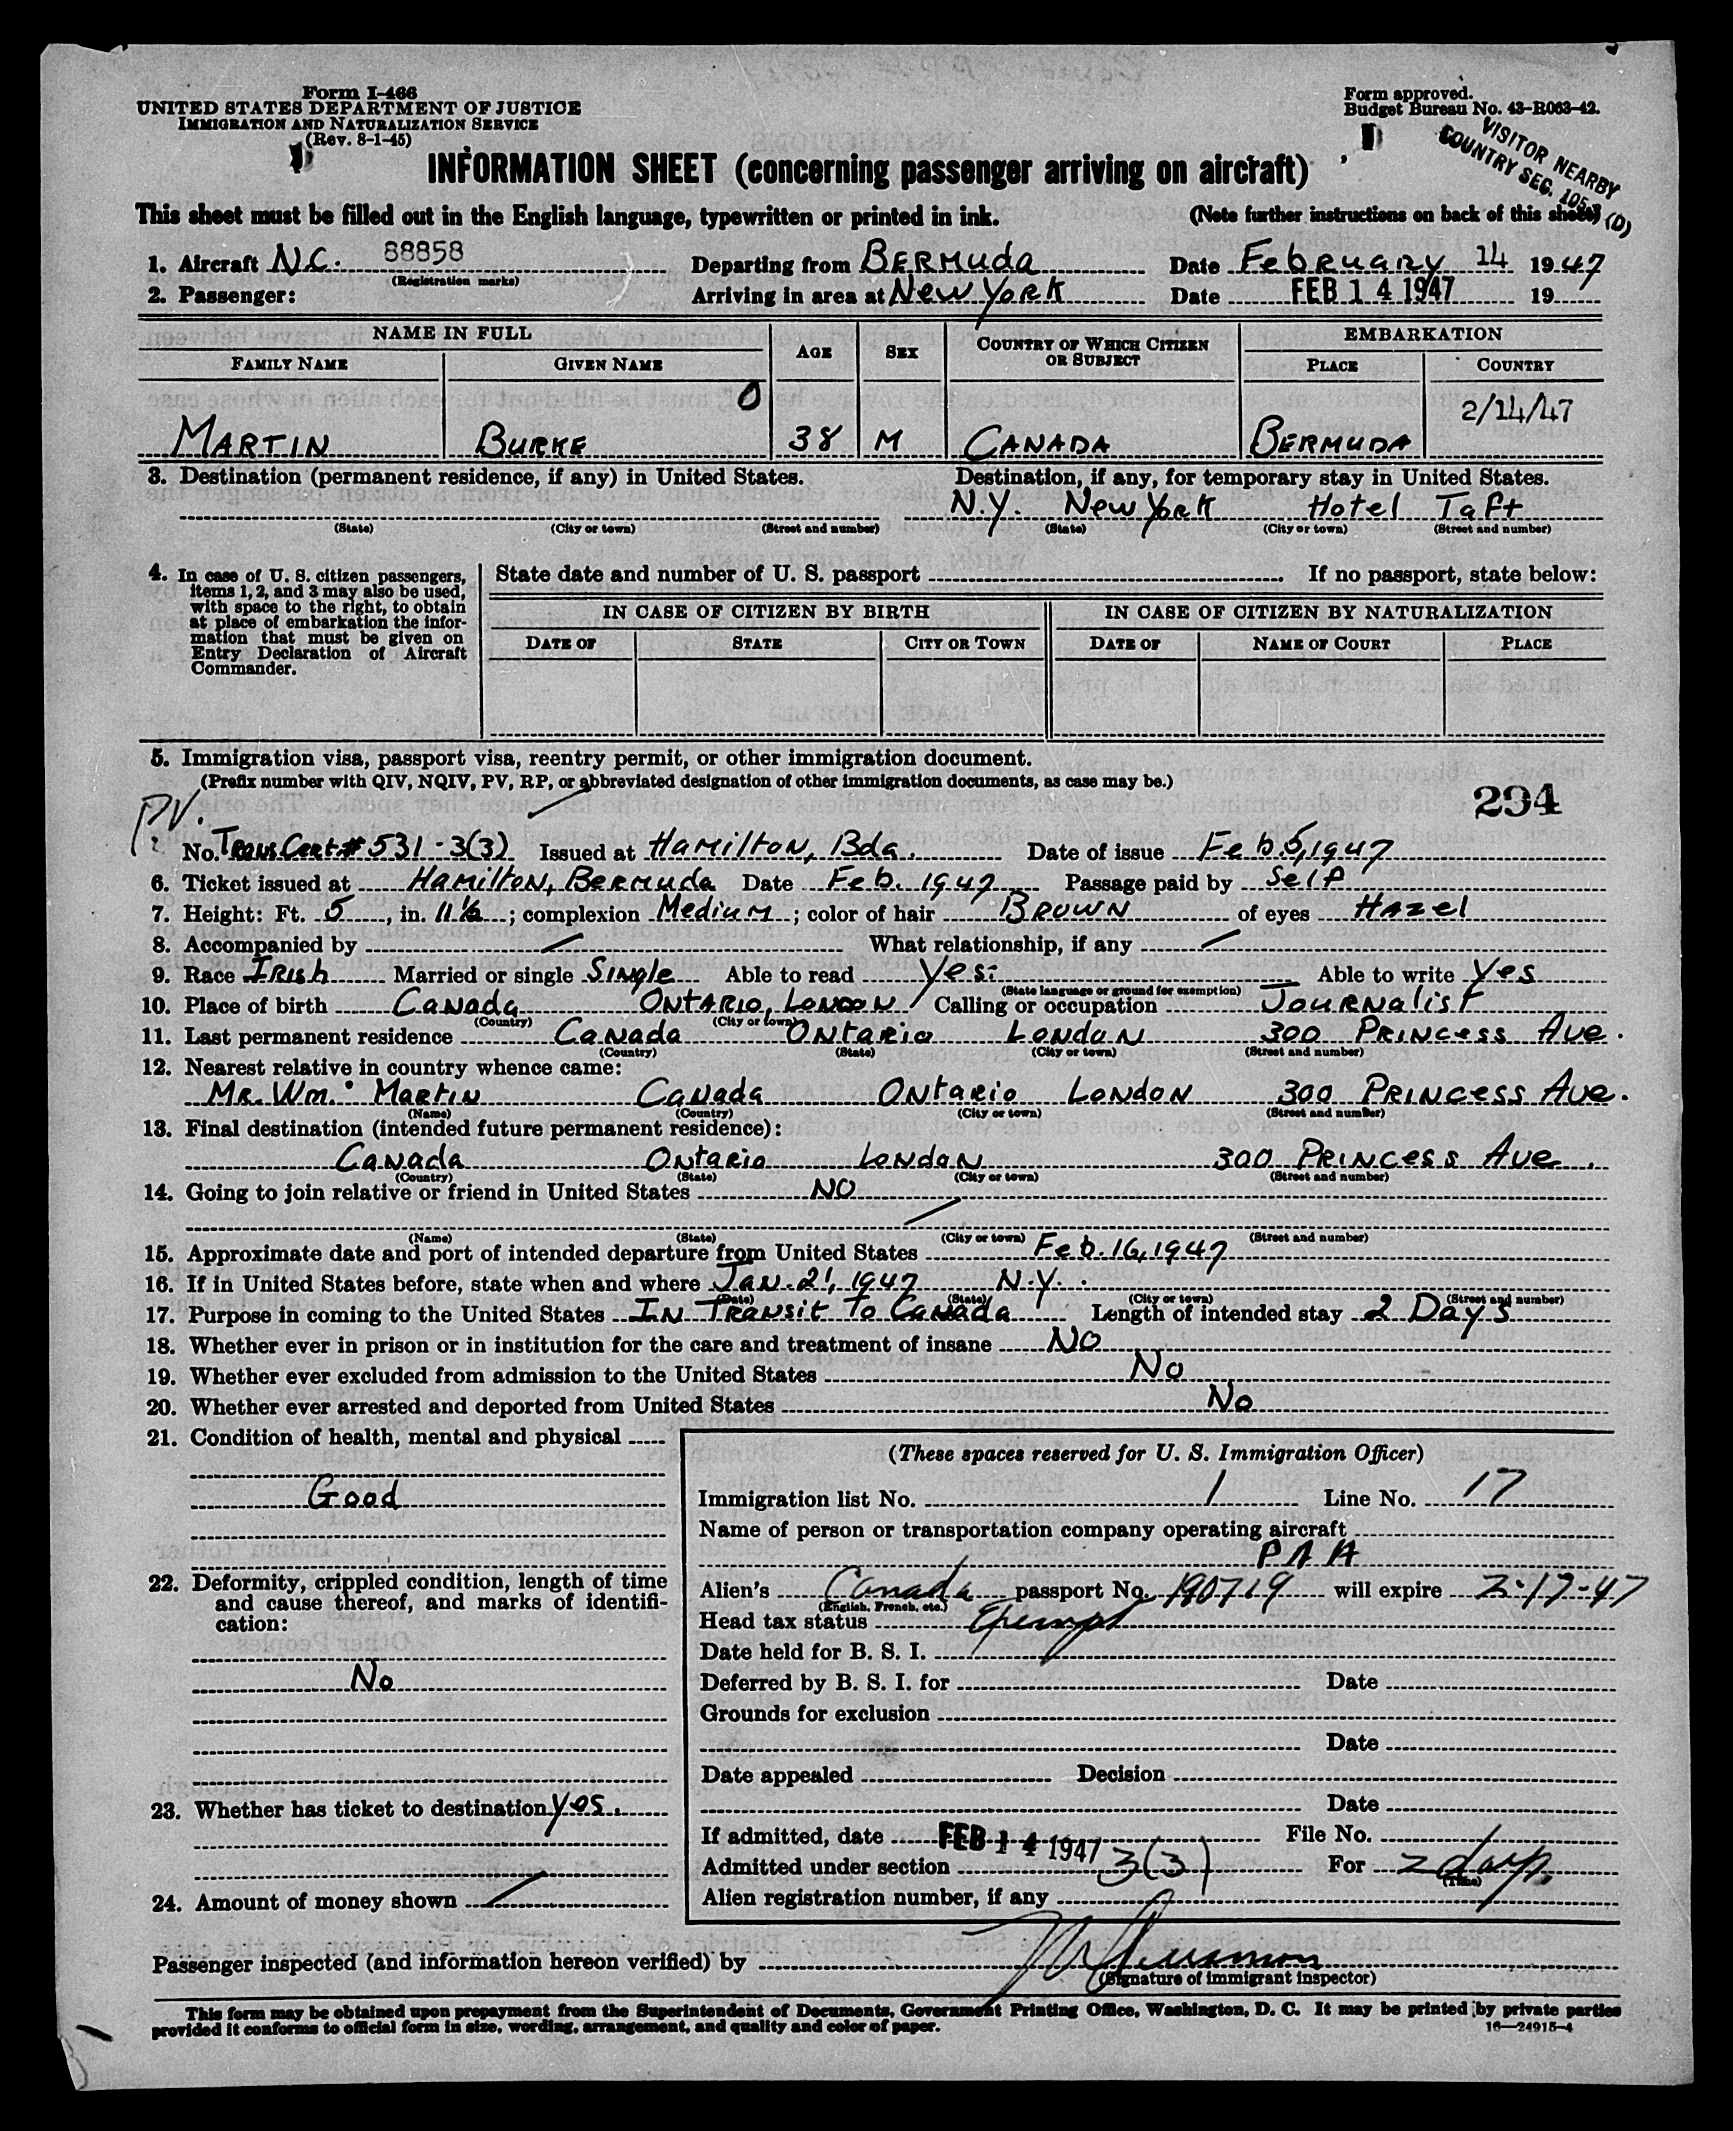 Form I-466
UNITED STATES DEPARTMENT OF JUSTICE
IMMIGRATION AND NATURALIZATION SERVICE
(Rev. 8-1-45)
Form approved.
Budget Bureau No. 43-R063-42.
VISITOR NEARBY
COUNTRY SEC. 105.3 (D)
INFORMATION SHEET (concerning passenger arriving on aircraft)
This sheet must be filled out in the English language, typewritten or printed in ink. (Note further instructions on back of this sheet)
1. Aircraft N.C. 88858 Departing from BERMUDA Date February 14 1947
(Registration marks)
2. Passenger: Arriving in area at New York Date FEB 14 1947 19
NAME IN FULL AGE SEX COUNTRY OF WHICH CITIZEN OR SUBJECT EMBARKATION
FAMILY NAME GIVEN NAME PLACE COUNTRY
0 2/14/47
MARTIN BURKE 38 M CANADA BERMUDA
3. Destination (permanent residence, if any) in United States. Destination, if any, for temporary stay in United States.
N.Y. New York Hotel Taft
(State) (City or town) (Street and number) (State) (City or town) (Street and number)
4. In case of U. S. citizen passengers, items 1, 2, and 3 may also be used, with space to the right, to obtain at place of embarkation the information that must be given on Entry Declaration of Aircraft Commander.
State date and number of U. S. passport If no passport, state below:
IN CASE OF CITIZEN BY BIRTH IN CASE OF CITIZEN BY NATURALIZATION
DATE OF STATE CITY OR TOWN DATE OF NAME OF COURT PLACE
5. Immigration visa, passport visa, reentry permit, or other immigration document.
(Prefix number with QIV, NQIV, PV, RP, or abbreviated designation of other immigration documents, as case may be.)
294
PV.
No. Trans Cert # 531-3(3) Issued at Hamilton, Bda. Date of issue Feb. 5, 1947
6. Ticket issued at Hamilton, Bermuda Date Feb. 1947 Passage paid by Self
7. Height: Ft. 5, in. 11½; complexion Medium; color of hair Brown of eyes Hazel
8. Accompanied by / What relationship, if any /
9. Race Irish Married or single Single Able to read Yes. Able to write Yes
(State language or ground for exemption)
10. Place of birth Canada Ontario, London Calling or occupation Journalist
(Country) (City or town)
11. Last permanent residence Canada Ontario London 300 Princess Ave.
(Country) (State) (City or town) (Street and number)
12. Nearest relative in country whence came:
Mr. Wm. Martin Canada Ontario London 300 Princess Ave.
(Name) (Country) (City or town) (Street and number)
13. Final destination (intended future permanent residence):
Canada Ontario London 300 Princess Ave.
(Country) (State) (City or town) (Street and number)
14. Going to join relative or friend in United States NO
(Name) (State) (City or town) (Street and number)
15. Approximate date and port of intended departure from United States Feb. 16, 1947
16. If in United States before, state when and where Jan. 21, 1947 N.Y.
(Date) (State) (City or town) (Street and number)
17. Purpose in coming to the United States In Transit to Canada Length of intended stay 2 Days
18. Whether ever in prison or in institution for the care and treatment of insane No
19. Whether ever excluded from admission to the United States No
20. Whether ever arrested and deported from United States No
21. Condition of health, mental and physical
Good
22. Deformity, crippled condition, length of time and cause thereof, and marks of identification:
No
23. Whether has ticket to destination Yes.
24. Amount of money shown /
(These spaces reserved for U. S. Immigration Officer)
Immigration list No. 1 Line No. 17
Name of person or transportation company operating aircraft
PAA
Alien's Canada passport No. 190719 will expire 2-17-47
(English, French, etc.)
Head tax status Exempt
Date held for B. S. I.
Deferred by B. S. I. for Date
Grounds for exclusion
Date
Date appealed Decision
Date
If admitted, date FEB 14 1947 File No.
Admitted under section 3(3) For 2 days.
(Time)
Alien registration number, if any
Passenger inspected (and information hereon verified) by
(Signature of immigrant inspector)
This form may be obtained upon prepayment from the Superintendent of Documents, Government Printing Office, Washington, D. C. It may be printed by private parties
provided it conforms to official form in size, wording, arrangement, and quality and color of paper.
16—24915-4